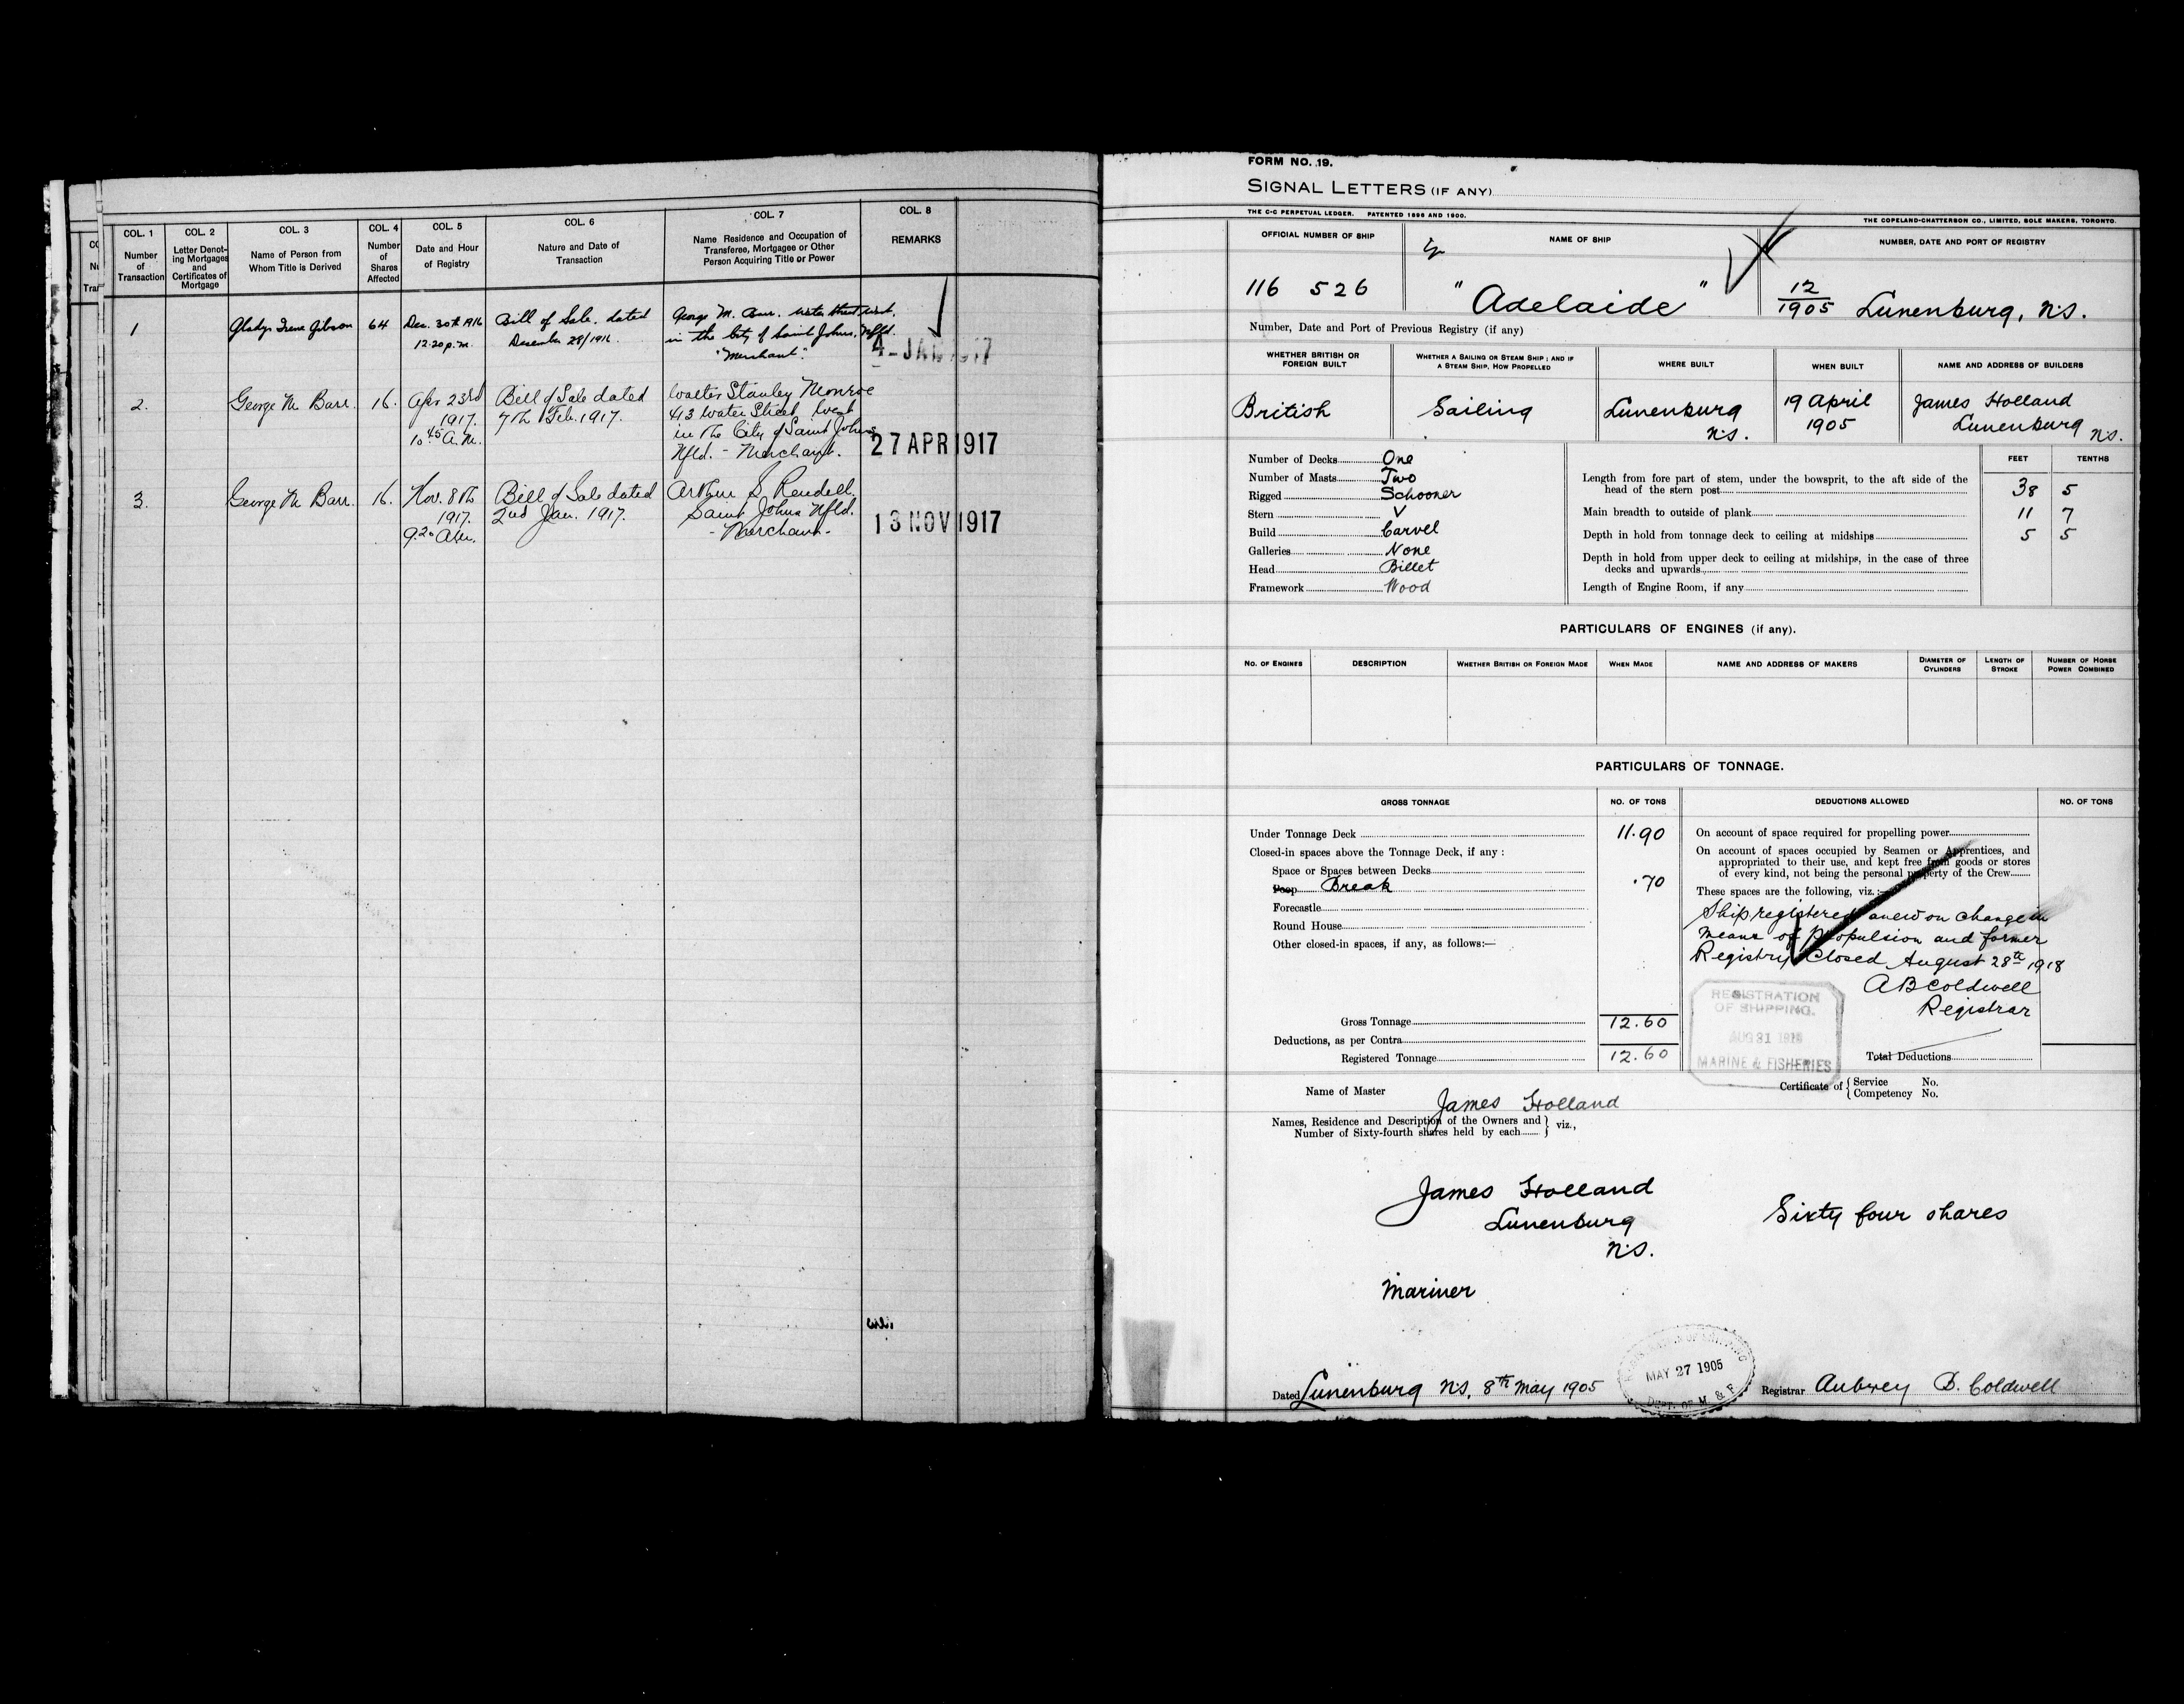 COL. 1
Number
of
Transaction
COL. 2
Letter Denot-
ing Mortgages
and
Certificates of
Mortgage
COL. 3
Name of Person from
Whom Title is Derived
COL. 4
Number
of
Shares
Affected
COL. 5
Date and Hour
of Registry
COL. 6
Nature and Date of
Transaction
COL. 7
Name Residence and Occupation of
Transferee, Mortgagee or Other
Person Acquiring Title or Power
COL. 8
REMARKS
1
Gladys Irene Gibson
64
Dec. 30th 1916
12.20 p.m.
Bill of Sale. dated
December 28/1916.
George M. Barr. Water Street, West,
in the City of Saint Johns, Nfld.
"Merchant".
4 - JAN 1917
2.
George M. Barr.
16.
Apr 23rd
1917.
10.45 A.M.
Bill of Sale dated
7th Feb. 1917.
Walter Stanley Monroe
413 Water Street, West
in the City of Saint Johns
Nfld. - Merchant.
27 APR 1917
3.
George M. Barr.
16.
Nov. 8th
1917.
9.20 A.M.
Bill of Sale dated
2nd Jan. 1917.
Arthur S. Rendell.
Saint Johns Nfld.
- Merchant -
13 NOV 1917
FORM NO. 19.
SIGNAL LETTERS (IF ANY)
THE C-C PERPETUAL LEDGER. PATENTED 1896 AND 1900.
THE COPELAND-CHATTERSON CO., LIMITED, SOLE MAKERS, TORONTO.
OFFICIAL NUMBER OF SHIP
NAME OF SHIP
NUMBER, DATE AND PORT OF REGISTRY
116 526
"Adelaide"
12
1905 Lunenburg, N.S.
Number, Date and Port of Previous Registry (if any)
WHETHER BRITISH OR
FOREIGN BUILT
WHETHER A SAILING OR STEAM SHIP; AND IF
A STEAM SHIP, HOW PROPELLED
WHERE BUILT
WHEN BUILT
NAME AND ADDRESS OF BUILDERS
British
Sailing
Lunenburg
N.S.
19 April
1905
James Holland
Lunenburg
N.S.
Number of Decks One
Number of Masts Two
Rigged Schooner
Stern V
Build Carvel
Galleries None
Head Billet
Framework Wood
FEET
TENTHS
Length from fore part of stem, under the bowsprit, to the aft side of the
head of the stern post 38 5
Main breadth to outside of plank 11 7
Depth in hold from tonnage deck to ceiling at midships 5 5
Depth in hold from upper deck to ceiling at midships, in the case of three
decks and upwards
Length of Engine Room, if any
PARTICULARS OF ENGINES (if any).
NO. OF ENGINES
DESCRIPTION
WHETHER BRITISH OR FOREIGN MADE
WHEN MADE
NAME AND ADDRESS OF MAKERS
DIAMETER OF
CYLINDERS
LENGTH OF
STROKE
NUMBER OF HORSE
POWER COMBINED
PARTICULARS OF TONNAGE.
GROSS TONNAGE
NO. OF TONS
DEDUCTIONS ALLOWED
NO. OF TONS
Under Tonnage Deck 11.90
Closed-in spaces above the Tonnage Deck, if any :
Space or Spaces between Decks
Poop Break .70
Forecastle
Round House
Other closed-in spaces, if any, as follows:—
Gross Tonnage 12.60
Deductions, as per Contra
Registered Tonnage 12.60
On account of space required for propelling power
On account of spaces occupied by Seamen or Apprentices, and
appropriated to their use, and kept free from goods or stores
of every kind, not being the personal property of the Crew
These spaces are the following, viz.:—
Ship registered anew on change in
means of Propulsion and former
Registry Closed August 28th 1918
A B Coldwell
Registrar
REGISTRATION
OF SHIPPING.
AUG 31 1918
MARINE & FISHERIES
Total Deductions
Name of Master James Holland
Certificate of { Service No.
Competency No.
Names, Residence and Description of the Owners and
Number of Sixty-fourth shares held by each } viz.,
James Holland
Lunenburg
N.S.
Sixty four shares
Mariner
MAY 27 1905
DEPT. OF M. & F.
Dated Lunenburg N.S. 8th May 1905
Registrar Aubrey B. Coldwell